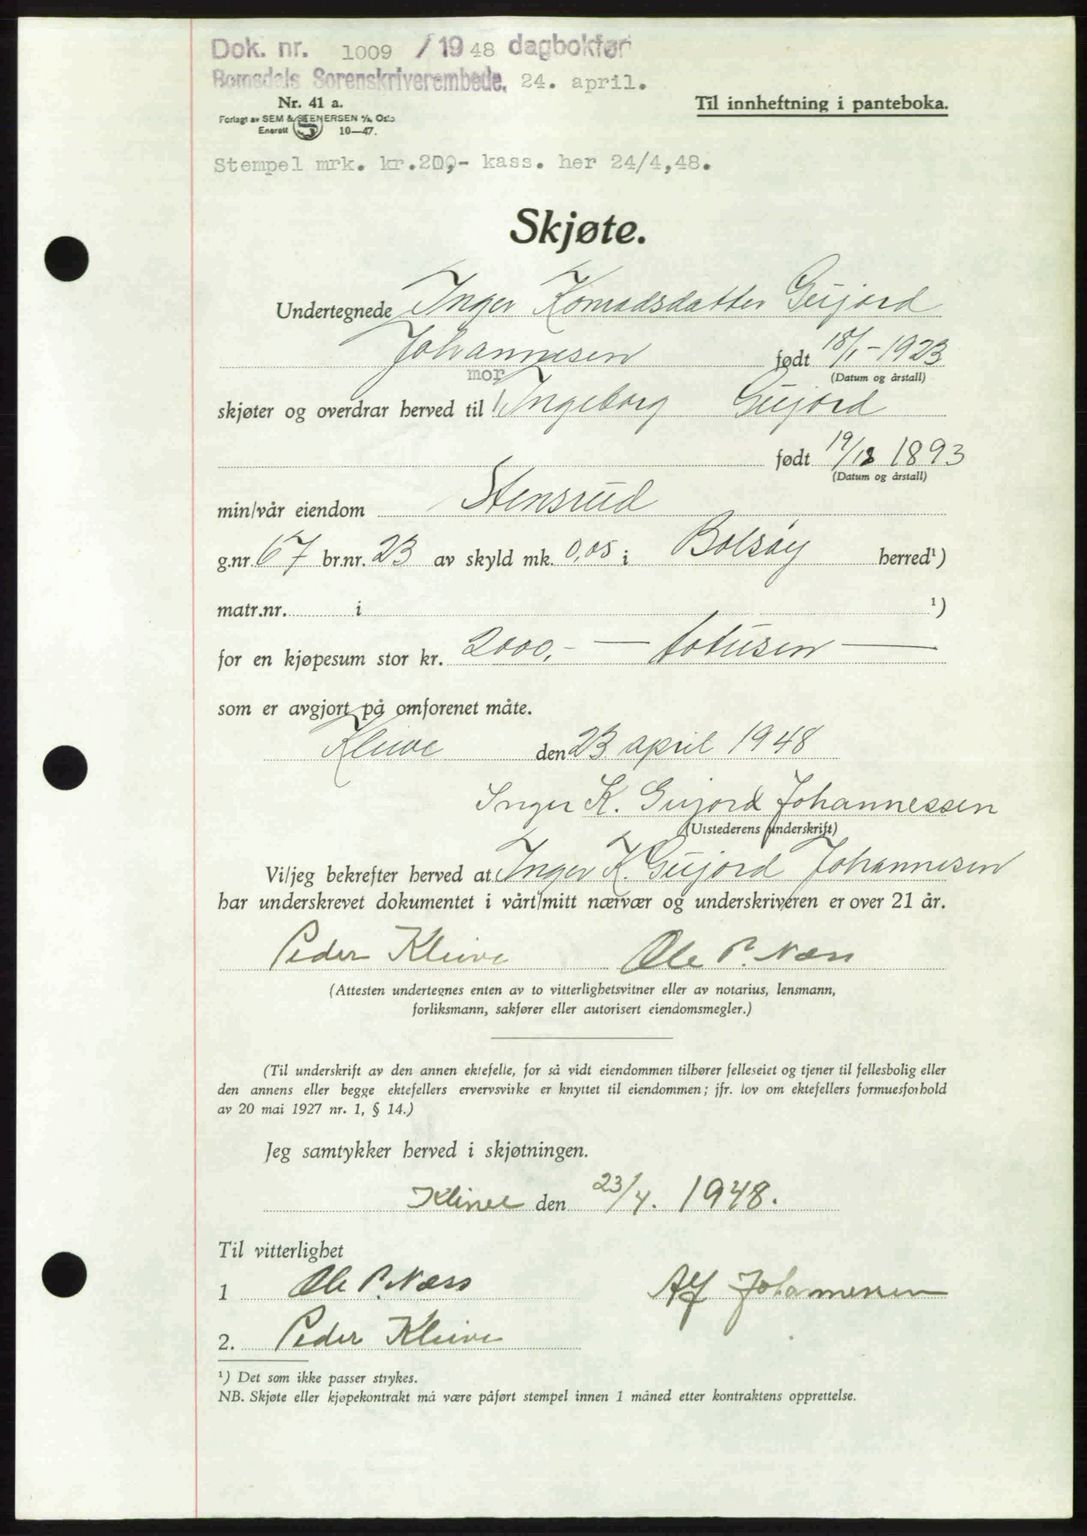 Dok. nr. 1009 /1948 dagbokfør
Romsdals Sorenskriverembede, 24. april.
Nr. 41 a.
Forlagt av SEM & STENERSEN A/S, Oslo
Enerett 10—47.
Til innheftning i panteboka.
Stempel mrk. kr.200,- kass. her 24/4,48.
Skjøte.
Undertegnede Inger Konradsdatter Gujord
Johannesen født 18/1-1923
(Datum og årstall)
mor
skjøter og overdrar herved til Ingeborg Gujord
født 19/12 1893
(Datum og årstall)
min/vår eiendom Stensrud
g.nr. 67 br.nr. 23 av skyld mk. 0,05 i Bolsøy herred¹)
matr.nr. i ¹)
for en kjøpesum stor kr. 2000,- — totusen —
som er avgjort på omforenet måte.
Kleive den 23 april 1948
Inger K. Gujord Johannessen
(Utstederens underskrift)
Vi/jeg bekrefter herved at Inger K. Gujord Johannesen
har underskrevet dokumentet i vårt/mitt nærvær og underskriveren er over 21 år.
Peder Kleive Ole P. Næss
(Attesten undertegnes enten av to vitterlighetsvitner eller av notarius, lensmann,
forliksmann, sakfører eller autorisert eiendomsmegler.)
(Til underskrift av den annen ektefelle, for så vidt eiendommen tilhører felleseiet og tjener til fellesbolig eller
den annens eller begge ektefellers ervervsvirke er knyttet til eiendommen; jfr. lov om ektefellers formuesforhold
av 20 mai 1927 nr. 1, § 14.)
Jeg samtykker herved i skjøtningen.
Kleive den 23/4. 1948.
Til vitterlighet
1 Ole P. Næss Alf Johannessen
2. Peder Kleive
¹) Det som ikke passer strykes.
NB. Skjøte eller kjøpekontrakt må være påført stempel innen 1 måned etter kontraktens opprettelse.